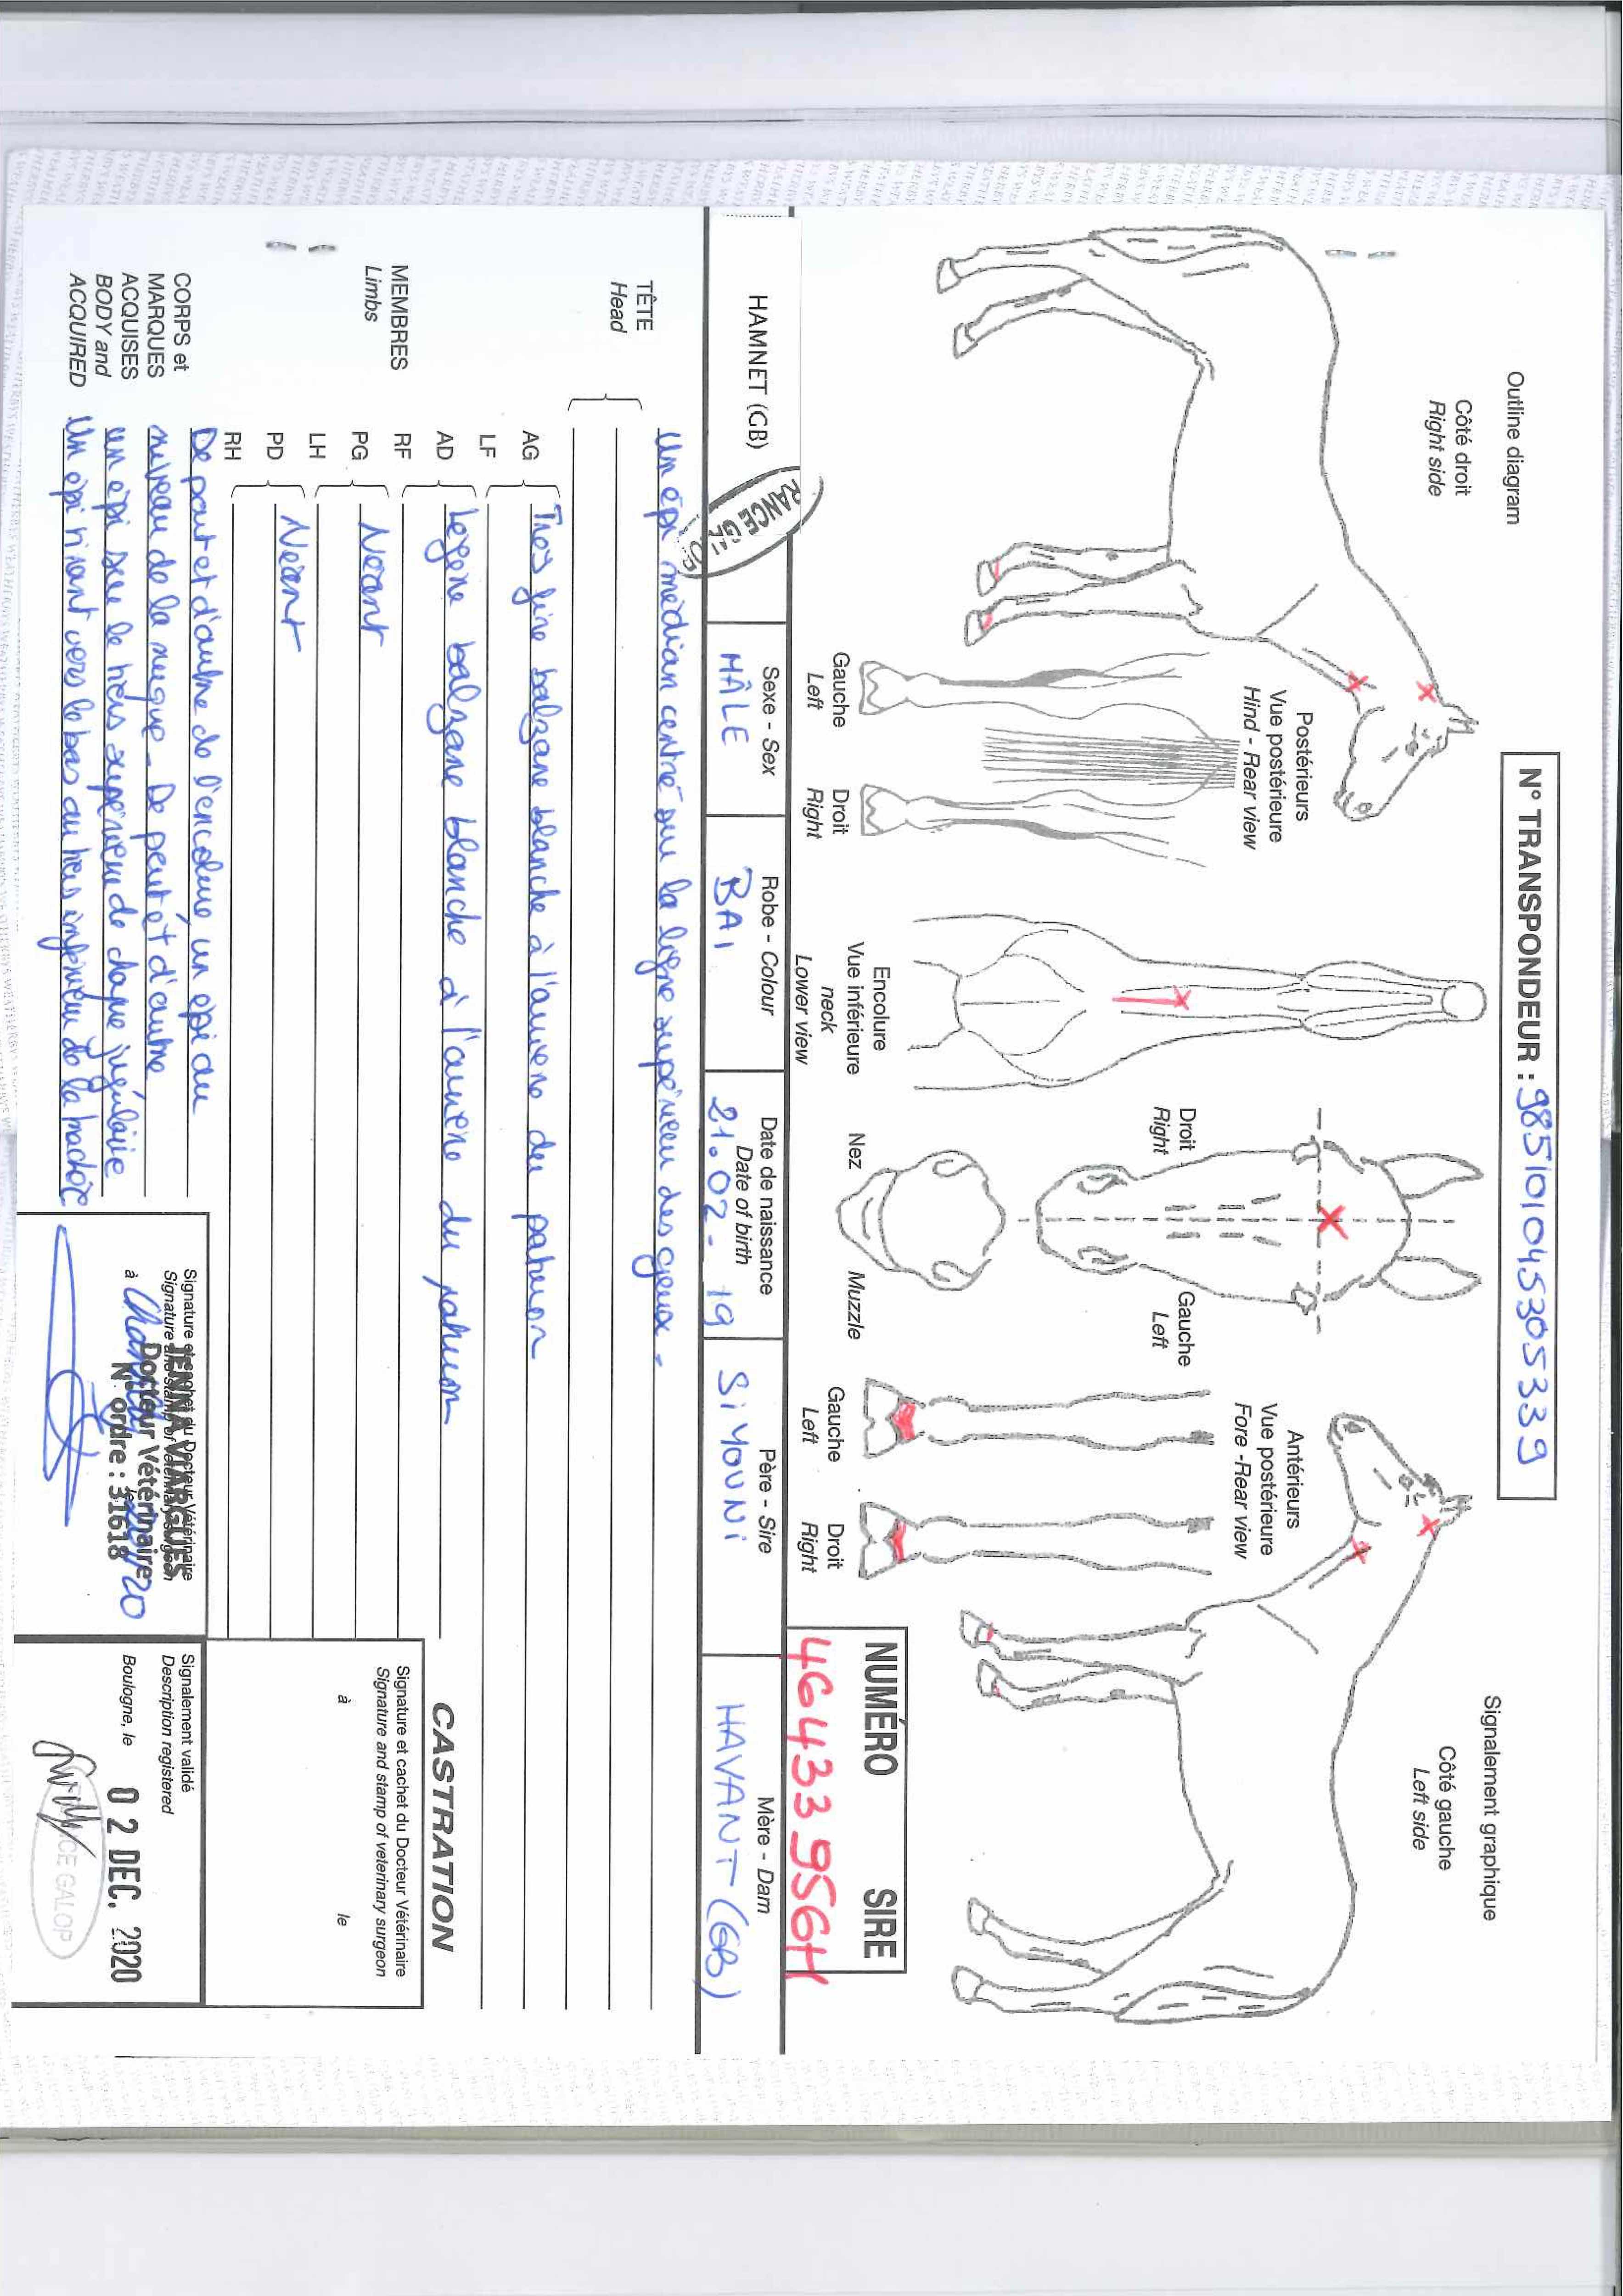 N° TRANSPONDEUR : 985101045305339
Outline diagram
Signalement graphique
Côté droit
Right side
Côté gauche
Left side
Postérieurs
Vue postérieure
Hind - Rear view
Gauche
Left
Droit
Right
Encolure
neck
Vue inférieure
Lower view
Droit
Right
Gauche
Left
Nez
Muzzle
Antérieurs
Vue postérieure
Fore - Rear view
Gauche
Left
Droit
Right
NUMÉRO SIRE
46433956H
HAMNET (GB)
Sexe - Sex
MÂLE
Robe - Colour
BAI
Date de naissance
Date of birth
21.02-19
Père - Sire
SiYOUNi
Mère - Dam
HAVANT (GB)
TÊTE
Head
Un épi médian centré sur la ligne supérieure des yeux.
MEMBRES
Limbs
AG
LF
Très fine balzane blanche à l'arrière du paturon
AD
RF
Légère balzane blanche à l'arrière du paturon
PG
LH
Néant
PD
RH
Néant
CORPS et
MARQUES
ACQUISES
BODY and
ACQUIRED
De part et d'autre de l'encolure, un épi au
niveau de la nuque. De part et d'autre
un épi sur le tiers supérieur de chaque jugulaire
Un épi finant vers le bas au tiers inférieur de la trachée
CASTRATION
Signature et cachet du Docteur Vétérinaire
Signature and stamp of veterinary surgeon
à
le
Signature et cachet du Docteur Vétérinaire
Signature and stamp of veterinary surgeon
à
JENNA VIARGUES
Docteur Vétérinaire
N° ordre : 31618
Signalement validé
Description registered
Boulogne, le
02 DEC. 2020